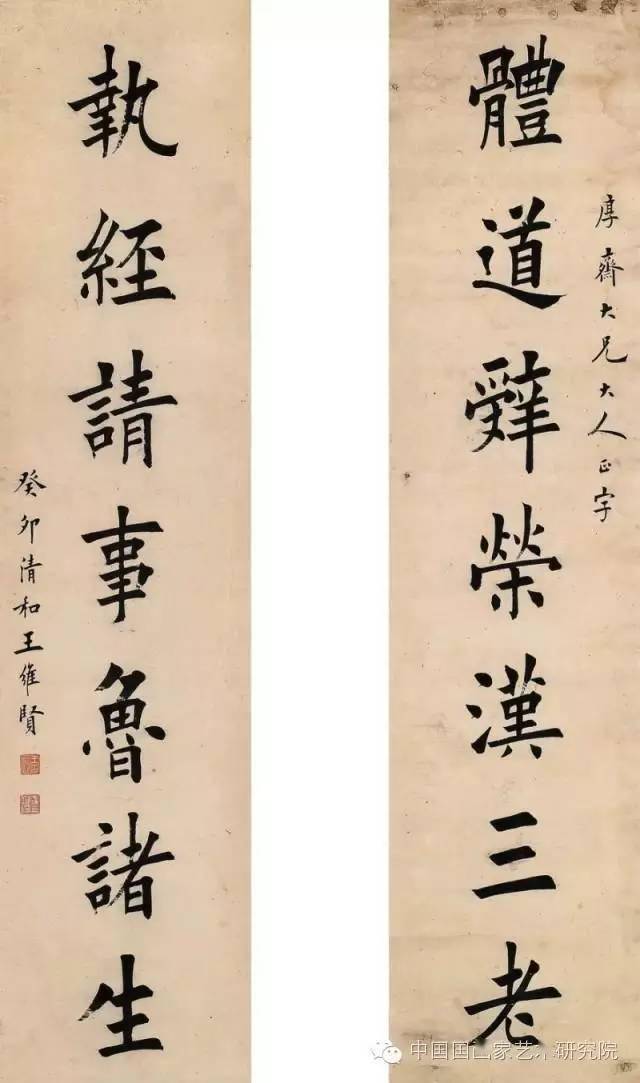 厚齋大兄大人正字
體道辤榮漢三老
執經請事魯諸生
癸卯清和王維賢
中国国画家艺术研究院